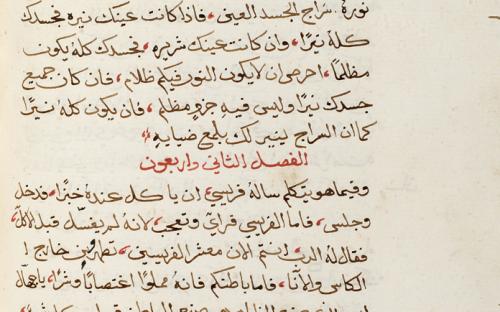 نوره، سراج الجسد العين، فاذا كانت عينك نيره فجسدك
كله نيرًا، وان كانت عينك شريره، فجسدك كله يكون
مظلمًا، احرص ان لا يكون النور فيكم ظلام، فان كان جميع
جسدك نيرًا وليس فيه جزو مظلم، فان يكون كله نيرًا
كما ان السراج ينير لك بلمع ضيايه
الفصل الثاني واربعون
وفيما هو يتكلم ساله فريسي ان ياكل عنده خبزًا، فدخل
وجلس، فاما الفريسي فراي وتعجب، لانه لم يغسل قبل الاكل،
فقال له الرب، انتم الان معشر الفريسيين، تطهرون خارج
الكاس والانا، فاما باطنكم فانه مملوا اغتصابًا وشرا، يا جهال